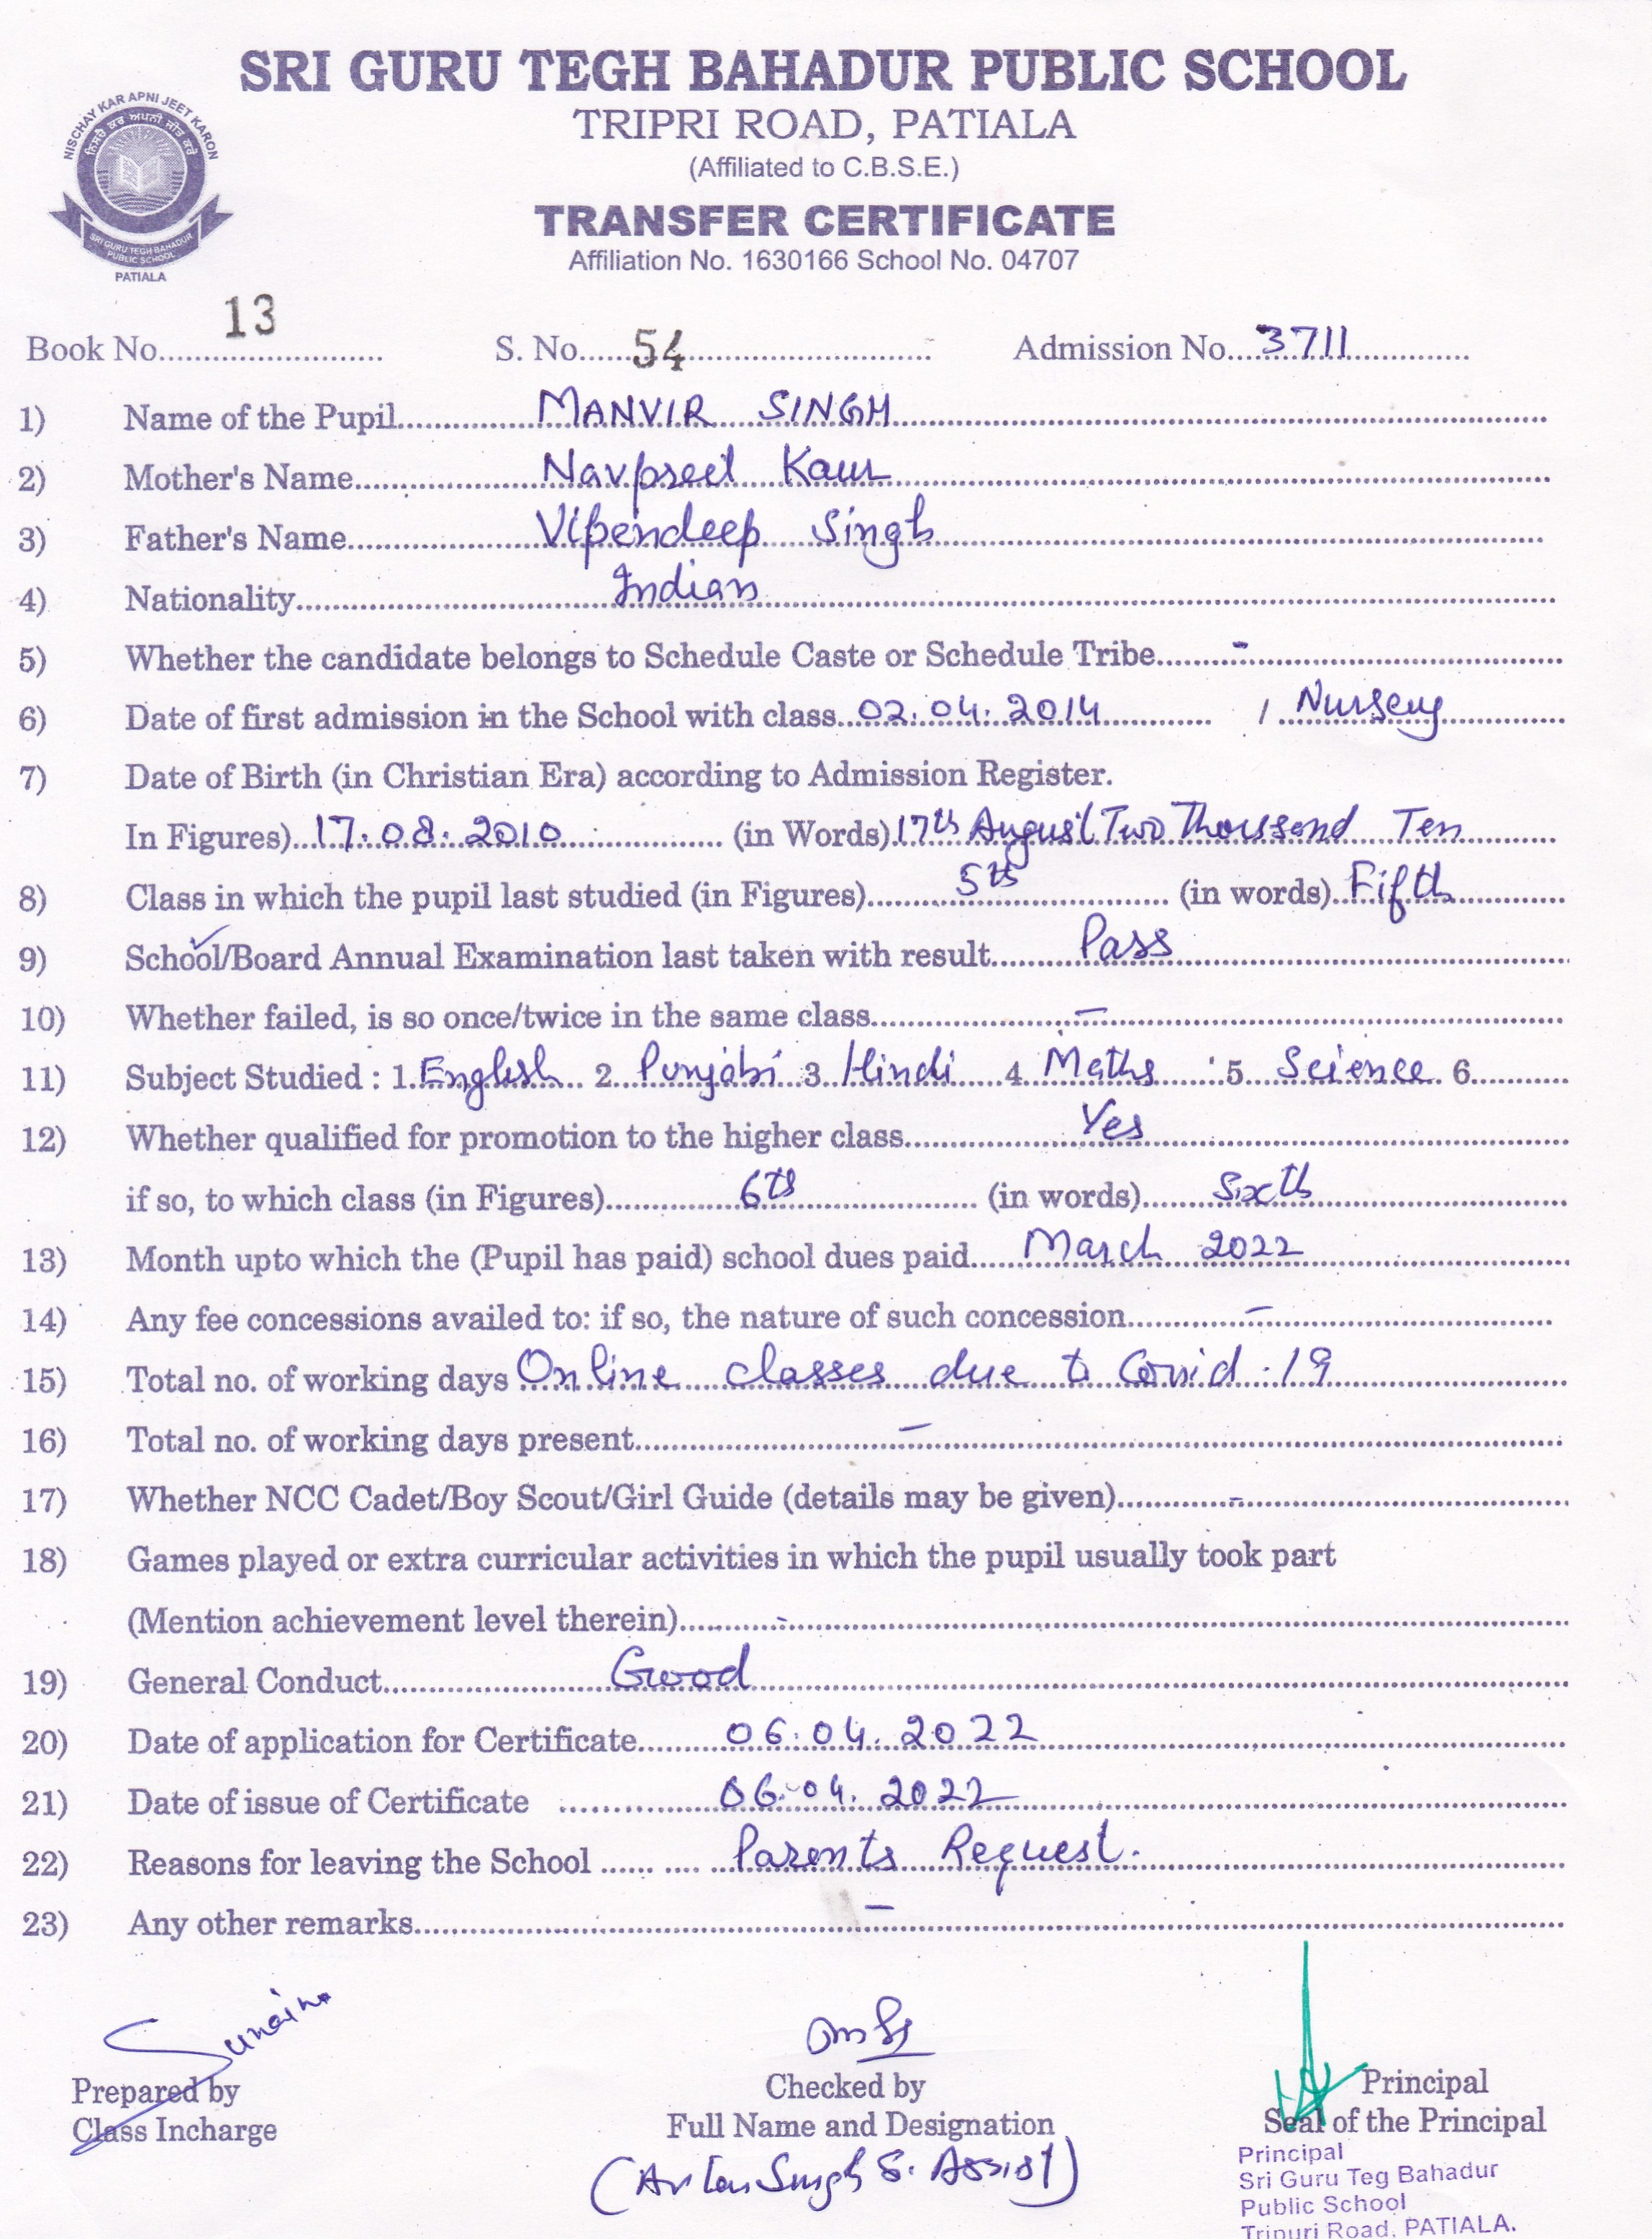 SRI GURU TEGH BAHADUR PUBLIC SCHOOL
TRIPRI ROAD, PATIALA
(Affiliated to C.B.S.E.)
TRANSFER CERTIFICATE
Affiliation No. 1630166 School No. 04707
NISCHAY KAR APNI JEET KARON
ਨਿਸਚੈ ਕਰ ਅਪਨੀ ਜੀਤ ਕਰੋਂ
SRI GURU TEGH BAHADUR
PUBLIC SCHOOL
PATIALA
Book No. 13 S. No. 54 Admission No. 3711
1) Name of the Pupil MANVIR SINGH
2) Mother's Name Navpreet Kaur
3) Father's Name Vipendeep Singh
4) Nationality Indian
5) Whether the candidate belongs to Schedule Caste or Schedule Tribe -
6) Date of first admission in the School with class 02.04.2014 / Nursery
7) Date of Birth (in Christian Era) according to Admission Register.
In Figures) 17.08.2010 (in Words) 17th August Two Thousand Ten
8) Class in which the pupil last studied (in Figures) 5th (in words) Fifth
9) School/Board Annual Examination last taken with result Pass
10) Whether failed, is so once/twice in the same class —
11) Subject Studied : 1. English 2. Punjabi 3. Hindi 4. Maths 5. Science 6.
12) Whether qualified for promotion to the higher class Yes
if so, to which class (in Figures) 6th (in words) Sixth
13) Month upto which the (Pupil has paid) school dues paid March 2022
14) Any fee concessions availed to: if so, the nature of such concession —
15) Total no. of working days Online classes due to Covid-19
16) Total no. of working days present —
17) Whether NCC Cadet/Boy Scout/Girl Guide (details may be given) -
18) Games played or extra curricular activities in which the pupil usually took part
(Mention achievement level therein) -
19) General Conduct Good
20) Date of application for Certificate 06.04.2022
21) Date of issue of Certificate 06.04.2022
22) Reasons for leaving the School Parents Request.
23) Any other remarks —
Sunaina
Prepared by
Class Incharge
Checked by
Full Name and Designation
Singh S. Assist)
Principal
Seal of the Principal
Principal
Sri Guru Teg Bahadur
Public School
Tripuri Road, PATIALA.